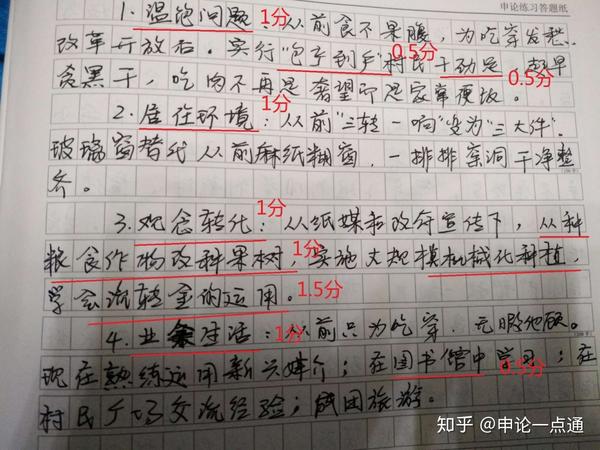 申论练习答题纸
1.温饱问题：从前食不果腹，为吃穿发愁。 1分
改革开放后。实行"包产到户"村民干劲足，起早 0.5分
贪黑干，吃肉不再是奢望而是家常便饭。 0.5分
2.居住环境：从前"三转一响"变为"三大件"。 1分
玻璃窗替代从前麻纸糊窗，一排排窑洞干净整
齐。
3.观念转化：从纸媒和政府宣传下，从种 1分
粮食作物改种果树，实施大规模机械化种植， 1分
学会流转金的运用。 1.5分
4.业余生活：从前只为吃穿，无暇他顾。 1分
现在熟练运用新兴媒介；在图书馆中学习；在 0.5分
村民广场交流经验；成团旅游。
知乎 @申论一点通